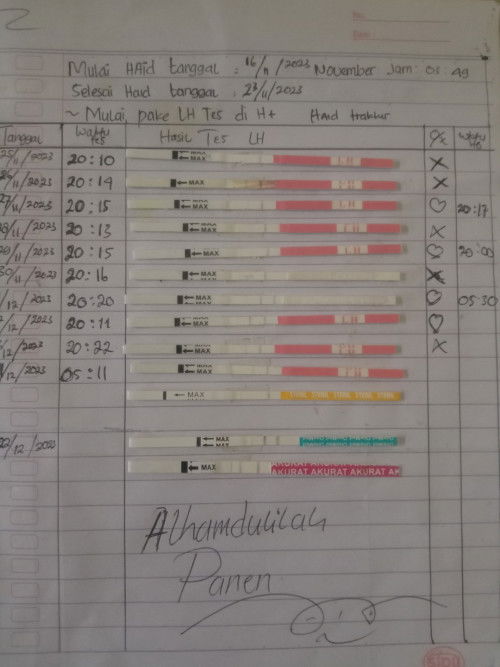 2
Mulai HAid tanggal : 16/11/2023 November Jam: 05:49
Selesai Haid tanggal : 23/11/2023
~ Mulai pake LH Tes di H+ HAid trakhir
Tanggal Waktu Tes Hasil Tes LH
25/11/2023 20:10 MAX LH X
26/11/2023 20:14 MAX X
27/11/2023 20:15 MAX LH ♡ 20:17
28/11/2023 20:13 MAX LH X
29/11/2023 20:15 MAX LH ♡ 20:00
30/11/2023 20:16 MAX X
/12/2023 20:20 MAX ♡ 05:30
/12/2023 20:11 MAX LH ♡
/12/2023 20:22 MAX X
/12/2023 05:11 MAX LH
MAX
22/12/2023 MAX
MAX AKURAT AKURAT AKURAT AK
Alhamdulilah
Panen